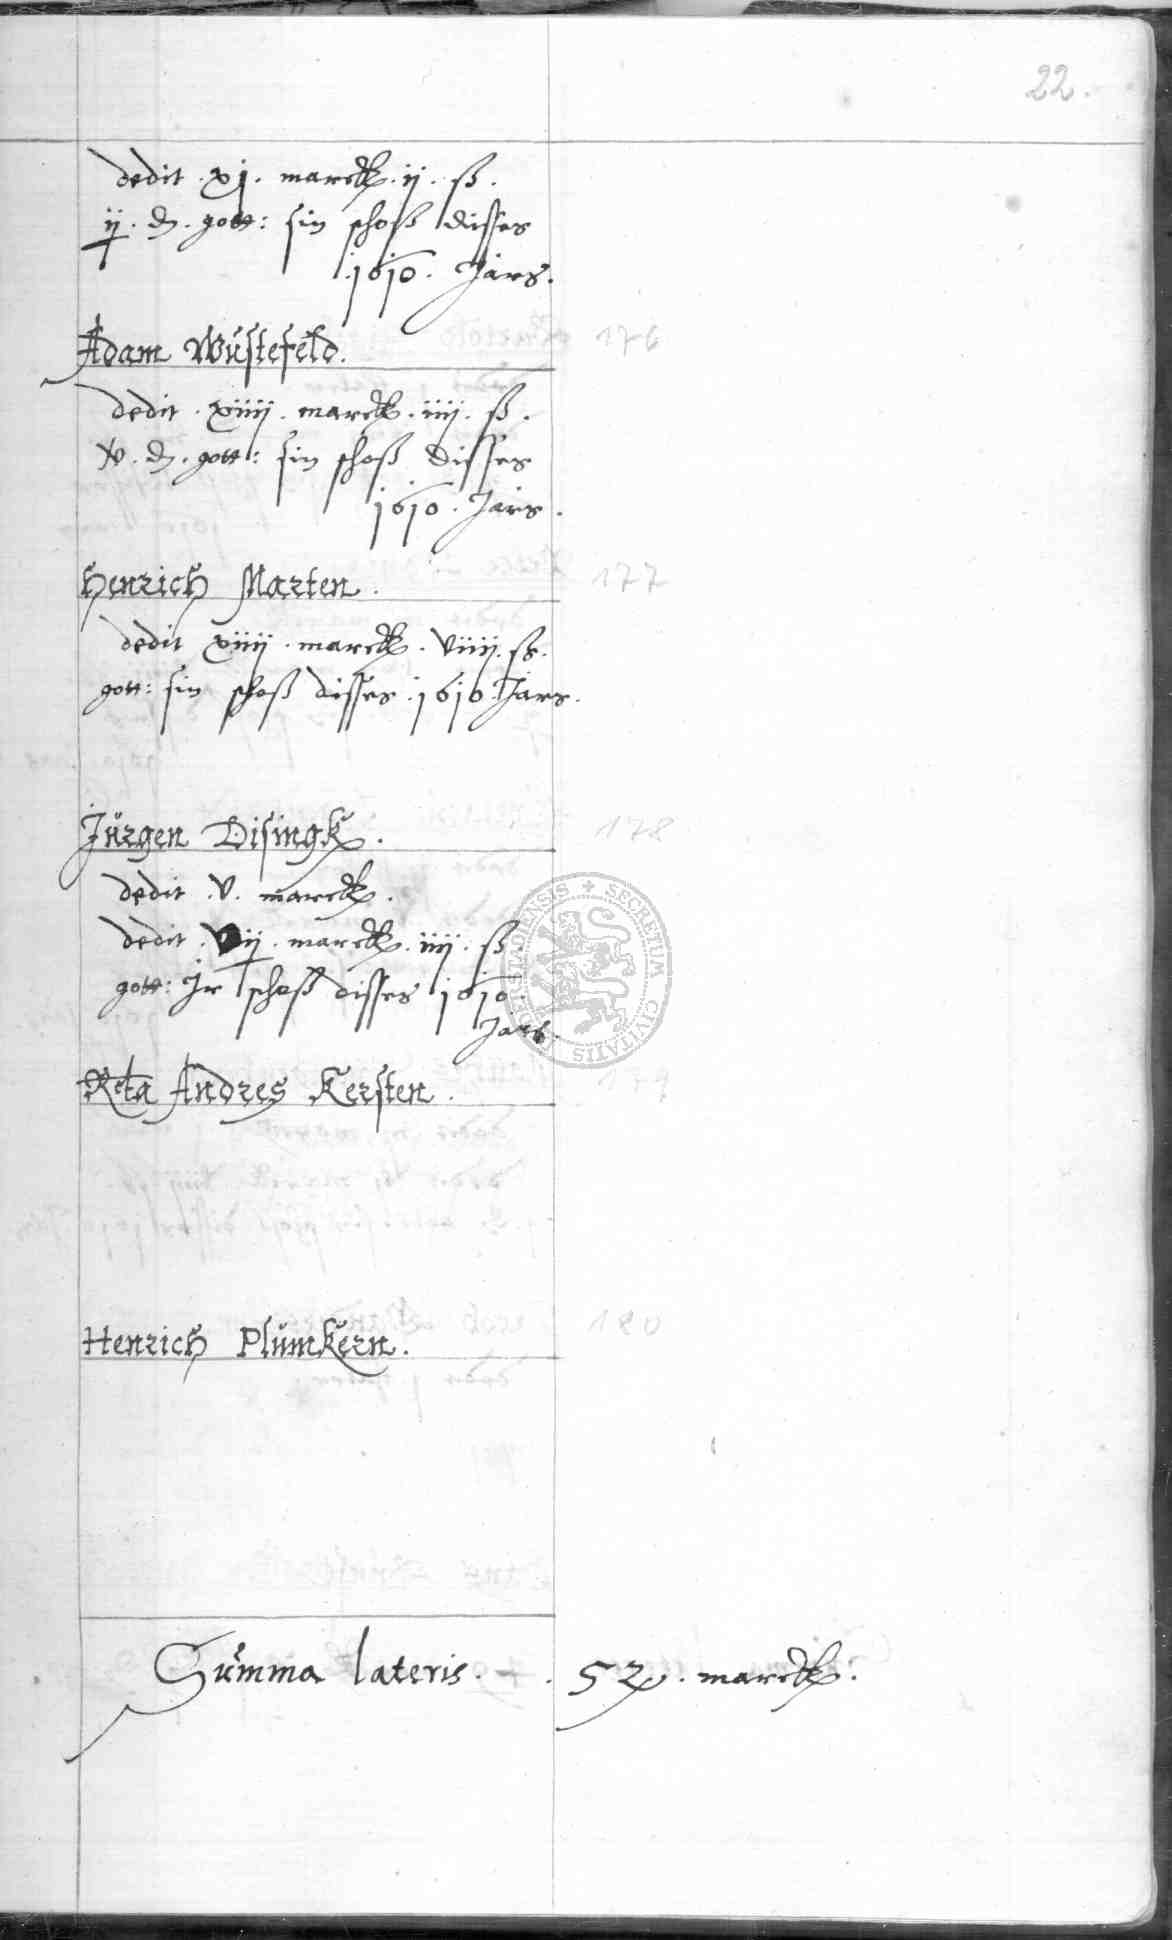 22.
dedit . xj . marck . ij . ß .
ij . d . gott : sin schoß disses
. 1610 . Jars .
Adam Wüstefeld . 176
dedit . xiiij . marck . iiij . ß .
v . d . gott : sin schoß disses
1610 . Jars .
Henrich Marten . 177
dedit xiiij . marck . viiij . ß .
gott : sin schoß disses . 1610 . Jars .
Jürgen Disingk . 178
dedit . v . marck .
dedit . vij . marck . iiij . ß .
gott : Jr schoß disses 1610 .
Jars .
Rcta Andres Kersten . 179
Henrich Plümkern . 180
Summa lateris . - . 52 . marck .
SECRETUM CIVITATIS